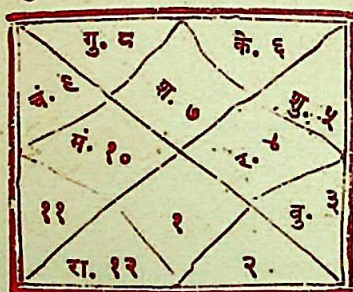 गु. ८ के. ६
चं. ९ श. ७ शु. ५
मं. १० र. ४
११ १ बु. ३
रा. १२ २